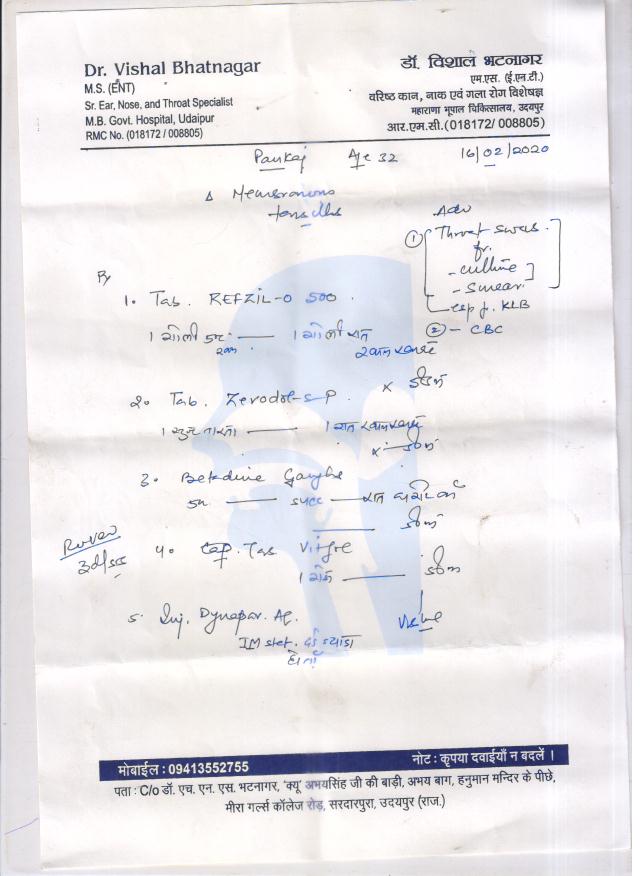 Dr. Vishal Bhatnagar
M.S. (ENT)
Sr. Ear, Nose, and Throat Specialist
M.B. Govt. Hospital, Udaipur
RMC No. (018172 / 008805)
डॉ. विशाल भटनागर
एम.एस. (ई.एन.टी.)
वरिष्ठ कान, नाक एवं गला रोग विशेषज्ञ
महाराणा भूपाल चिकित्सालय, उदयपुर
आर.एम.सी.(018172/ 008805)
Pankaj Age 32 16/02/2020
Δ Membranous
tonsillitis
Adv
① Throat swab
for
- culture
- smear
esp f. KLB
② - CBC
Rx
1. Tab. REFZIL-O 500
1 गोली 1 गोली रात
2. Tab. Zerodol-S P
1 सुबह नाश्ता 1 रात
3. Betadine Gargle
रात
4. Cap. Tab
Review
5. Inj. Dynapar Aq.
IM stat. दर्द ज्यादा
हो तो
मोबाईल : 09413552755
नोट : कृपया दवाईयाँ न बदलें ।
पता : C/o डॉ. एच. एन. एस. भटनागर, 'क्यू' अभयसिंह जी की बाड़ी, अभय बाग, हनुमान मन्दिर के पीछे,
मीरा गर्ल्स कॉलेज रोड़, सरदारपुरा, उदयपुर (राज.)